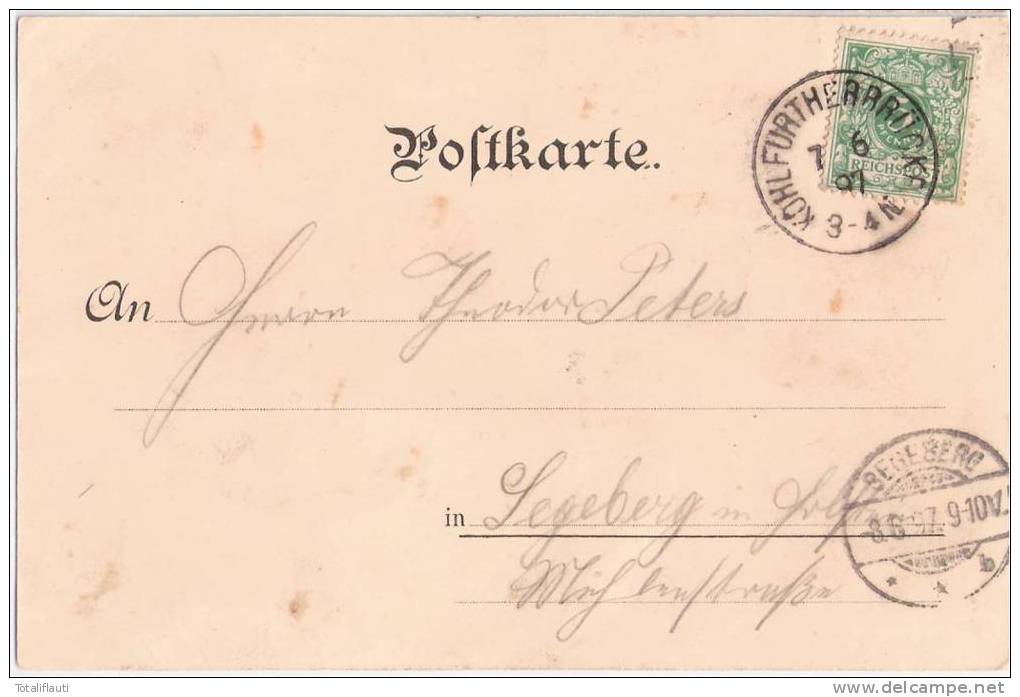 Postkarte.
KOHLFURTHERBRÜCKE
7 6
97
3-4 N
REICHSPOST
An Herrn Theodor Peters
in Segeberg in
Mühlenstraße
SEGEBERG
8.6.97. 9-10V.
* * b
Totaliflauti
www.delcampe.net